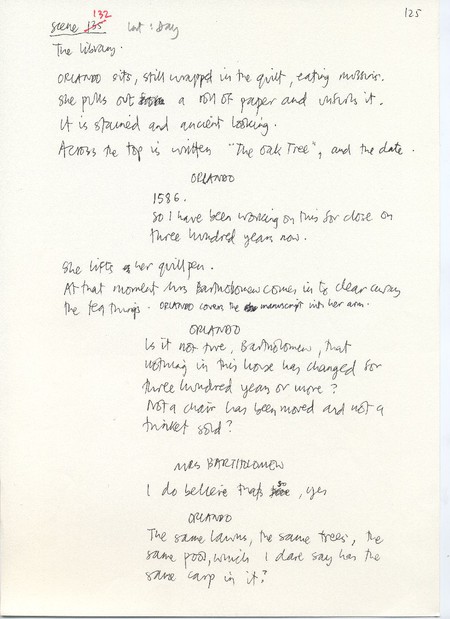 132 125
Scene 135 Int : Day
The Library.
ORLANDO sits, still wrapped in the quilt, eating muffins.
She pulls out a roll of paper and unfurls it.
It is stained and ancient looking.
Across the top is written "The Oak Tree", and the date.
ORLANDO
1586.
So I have been working on this for close on
three hundred years now.
She lifts her quill pen.
At that moment Mrs Bartholomew comes in to clear away
the tea things. ORLANDO covers the manuscript with her arm.
ORLANDO
Is it not true, Bartholomew, that
nothing in this house has changed for
three hundred years or more?
Not a chair has been moved and not a
trinket sold?
MRS BARTHOLOMEW
I do believe that's so, yes
ORLANDO
The same lawns, the same trees, the
same pool, which I dare say has the
same carp in it?